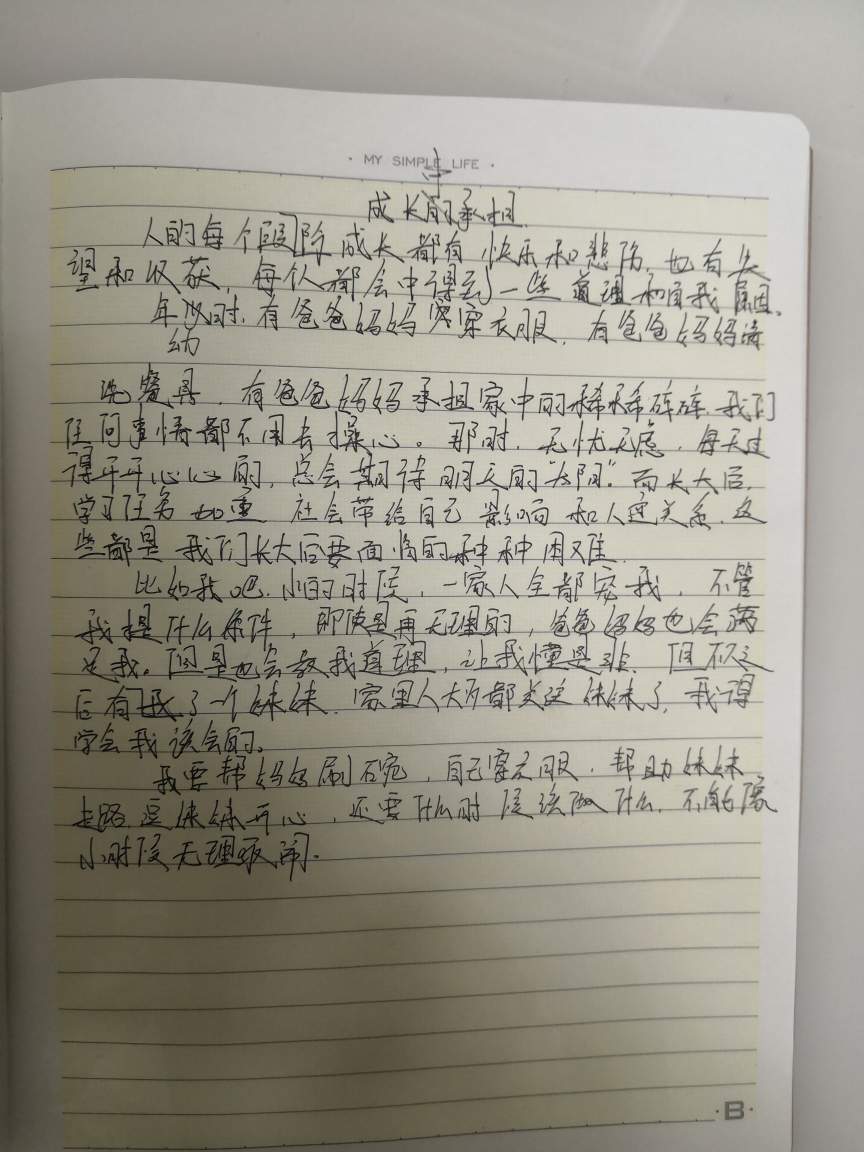 · MY SIMPLE LIFE ·
中
成长的承担
人的每个阶段成长都有快乐和悲伤,也有失
望和收获,每个人都会中得到一些道理和自我原因。
年少时,有爸爸妈妈穿衣服,有爸爸妈妈清
幼
洗餐具,有爸爸妈妈承担家中的稀稀碎碎,我们
任何事情都不用去操心。那时,无忧无虑,每天过
得开开心心的,总会期待明天的“太阳”。而长大后,
学习任务加重 社会带给自己影响和人逆关系,这
些都是我们长大后要面临的种种困难
比如我吧,小的时候,一家人全都宠我,不管
我提什么条件,即使是再无理的,爸爸妈妈也会满
足我。但是也会教我道理,让我懂是非,但不久之
后有了一个妹妹,家里人大多都关注妹妹了,我得
学会我该会的。
我要帮妈妈刷碗,自己穿衣服,帮助妹妹
走路,逗妹妹开心,还要什么时候该做什么,不能像
小时候无理取闹.
·B·